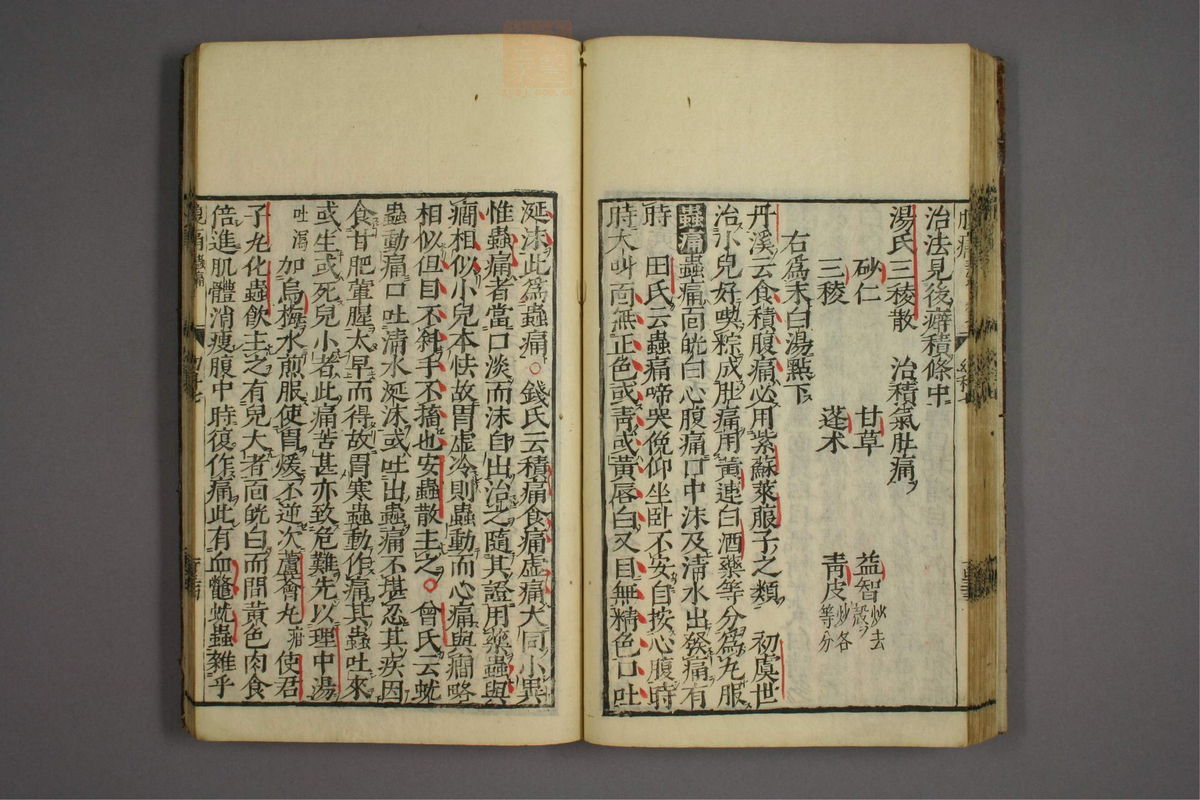 治法見後癖積條中
湯氏三稜散　治積氣肚痛
砂仁　甘草　益智炒去殼
三稜　蓬术　靑皮炒各等分
右為末白湯點下
丹溪云食積腹痛必用紫蘇萊菔子之類　初虞世
治小兒好喫粽成肚痛用黄連白酒藥等分為丸服
蟲痛蟲痛面㿠白心腹痛口中沫及淸水出發痛有
時　田氏云蟲痛啼哭俛仰坐卧不安自按心腹時
時大叫面無正色或靑或黄唇白又目無精色口吐
涎沫此為蟲痛○錢氏云積痛食痛虚痛大同小異
惟蟲痛者當口淡而沫自出治之隨其證用藥蟲與
癎相似小兒本怯故胃虚冷則蟲動而心痛與癎略
相似但目不斜手不搐也安蟲散主之○曾氏云蚘
蟲動痛口吐淸水涎沫或吐出蟲痛不堪忍其疾因
食甘肥葷腥太早而得故胃寒蟲動作痛其蟲吐來
或生或死兒小者此痛苦甚亦致危難先以理中湯
吐瀉加烏梅水煎服使胃煖不逆次蘆薈丸疳使君
子丸化蟲飲主之有兒大者面㿠白而間黄色肉食
倍進肌體消瘦腹中時復作痛此有血鼈蚘蟲雜乎
腹痛蟲痛